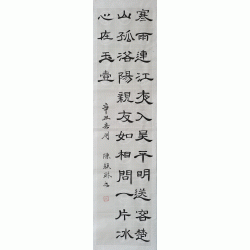 寒雨連江夜入吳平明送客楚
山孤洛陽親友如相問一片冰
心在玉壺
辛丑